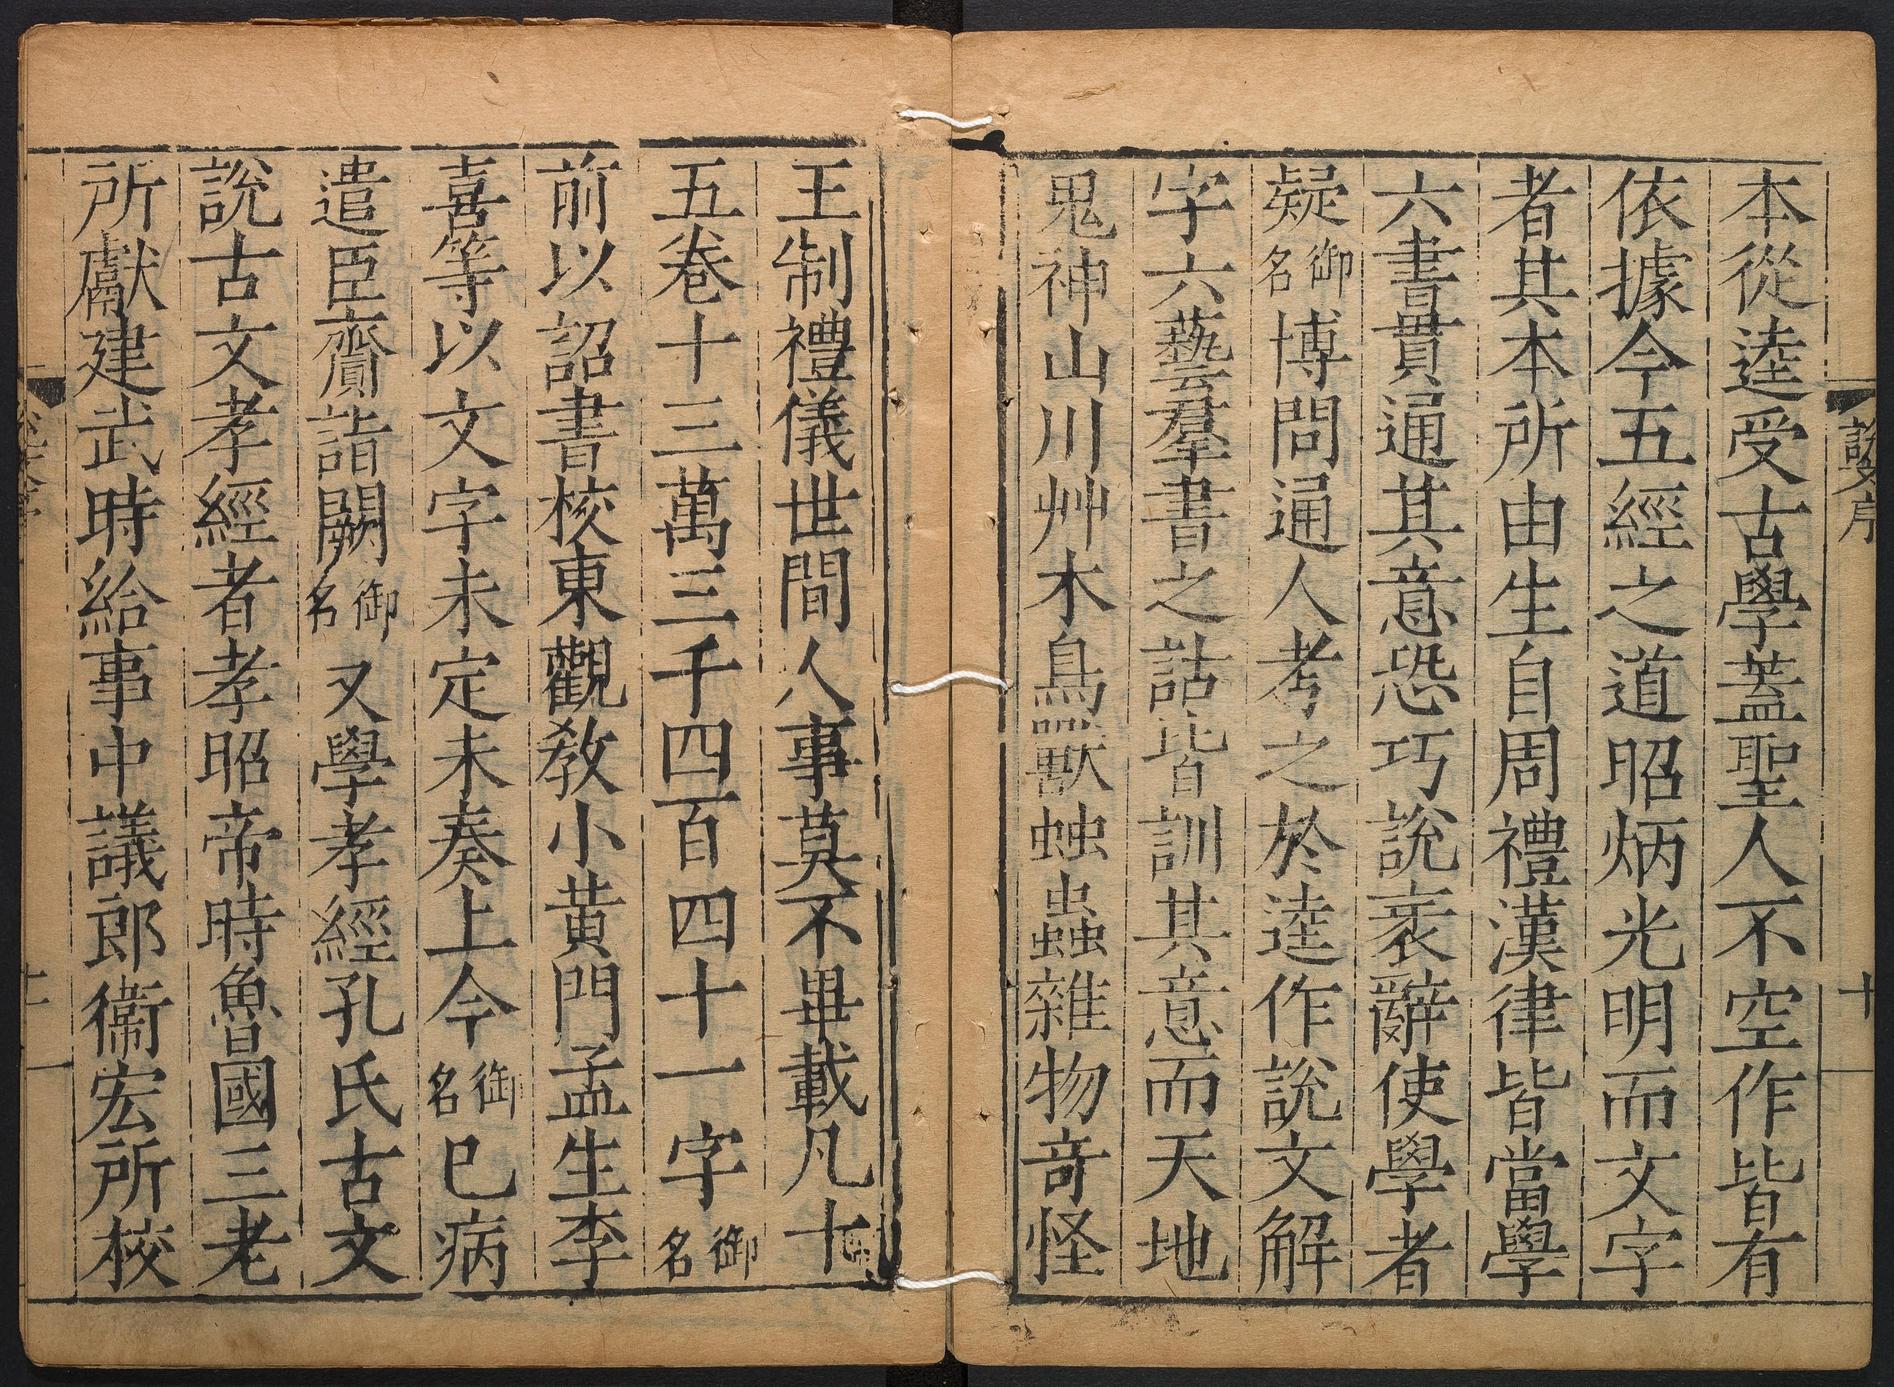 本從逵受古學蓋聖人不空作皆有
依據今五經之道昭炳光明而文字
者其本所由生自周禮漢律皆當學
六書貫通其意恐巧說衺辭使學者
疑御名博問通人考之於逵作說文解
字六藝羣書之詁皆訓其意而天地
鬼神山川艸木鳥獸䖵蟲雜物奇怪
王制禮儀世間人事莫不畢載凡十
五卷十三萬三千四百四十一字御名
前以詔書校東觀教小黃門孟生李
喜等以文字未定未奏上今御名已病
遣臣齎詣闕御名又學孝經孔氏古文
說古文孝經者孝昭帝時魯國三老
所獻建武時給事中議郎衞宏所校
說文序
十
十一